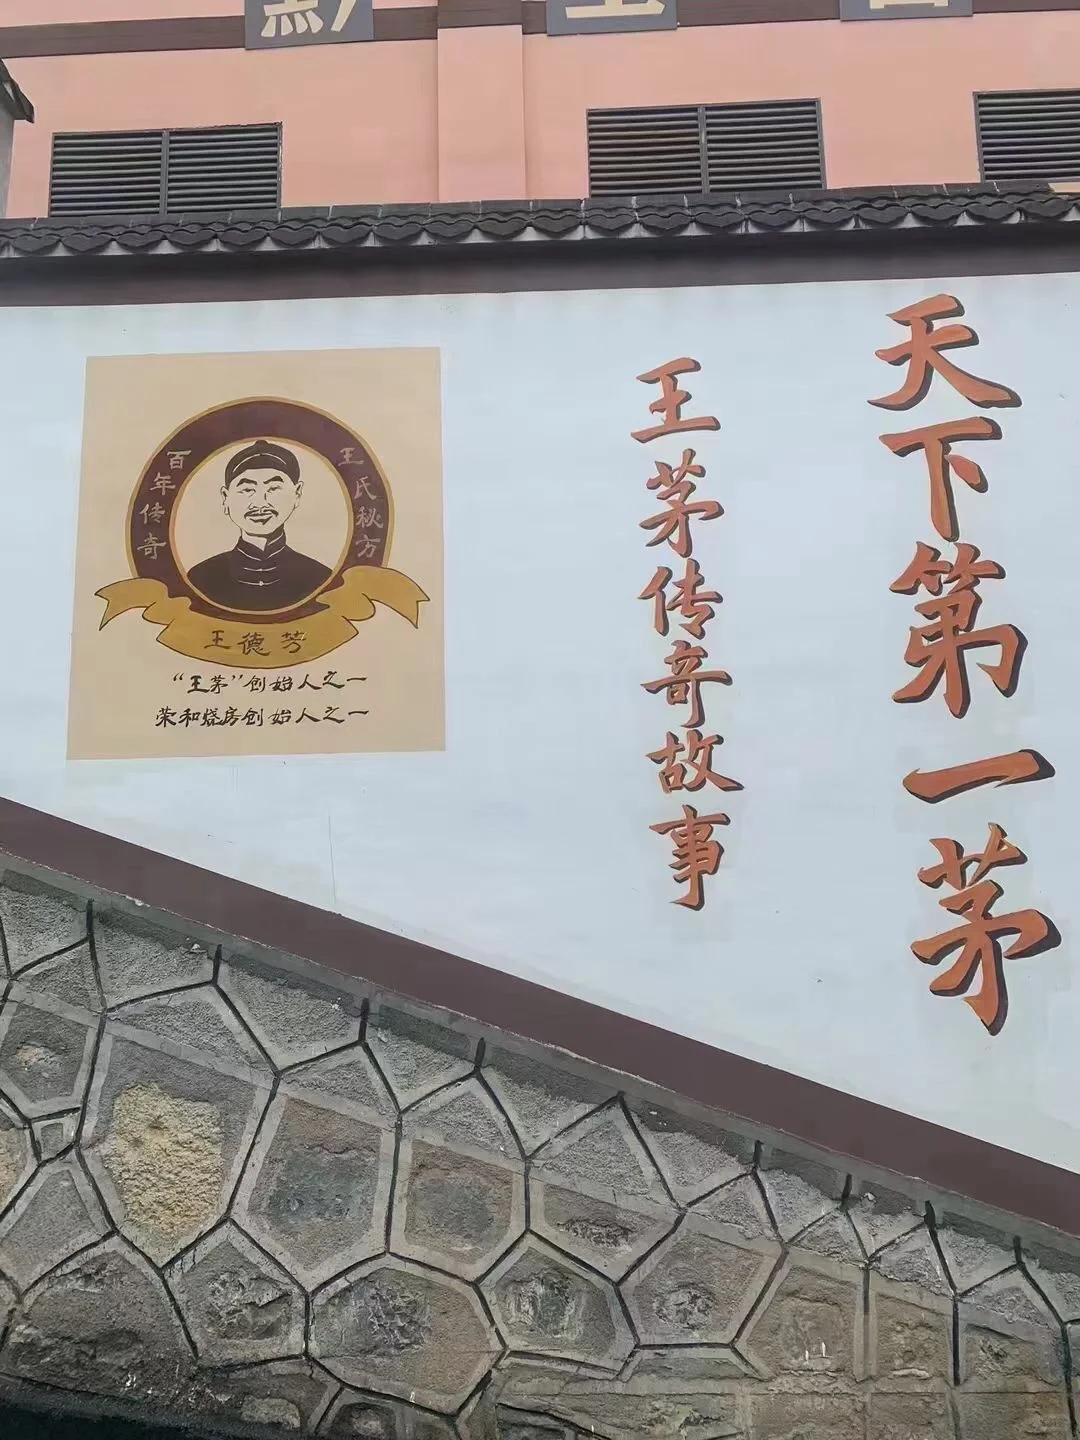 天下第一茅
王茅传奇故事
百年传奇
王氏秘方
王德芳
“王茅”创始人之一
荣和烧房创始人之一